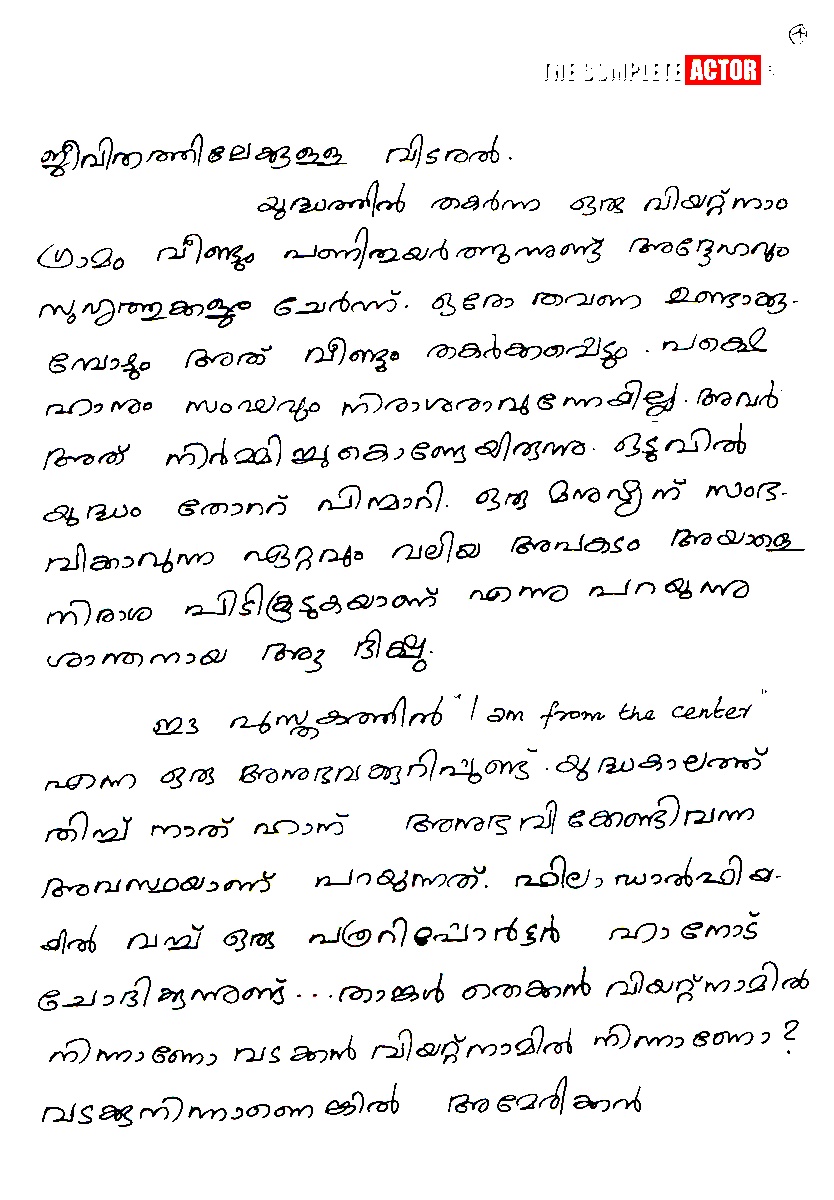 4
THE COMPLETE ACTOR
ജീവിതത്തിലേക്കുള്ള വിടരൽ.
യുദ്ധത്തിൽ തകർന്ന ഒരു വിയറ്റ്നാം
ഗ്രാമം വീണ്ടും പണിതുയർത്തുന്നുണ്ട് അദ്ദേഹവും
സുഹൃത്തുക്കളും ചേർന്ന്. ഒരോ തവണ ഉണ്ടാക്കു-
മ്പോഴും അത് വീണ്ടും തകർക്കപ്പെട്ടു. പക്ഷെ
ഹാനും സംഘവും നിരാശരാവുന്നേയില്ല. അവർ
അത് നിർമ്മിച്ചുകൊണ്ടേയിരുന്നു. ഒടുവിൽ
യുദ്ധം തോററ് പിന്മാറി. ഒരു മനുഷ്യന് സംഭ-
വിക്കാവുന്ന ഏറ്റവും വലിയ അപകടം അയാളെ
നിരാശ പിടികൂടുകയാണ് എന്നു പറയുന്നു
ശാന്തനായ ആ ഭിക്ഷു.
ഈ പുസ്തകത്തിൽ "I am from the center"
എന്ന ഒരു അനുഭവക്കുറിപ്പുണ്ട്. യുദ്ധകാലത്ത്
തിച്ച് നാത് ഹാന് അനുഭവിക്കേണ്ടിവന്ന
അവസ്ഥയാണ് പറയുന്നത്. ഫിലാഡാൽഫിയ-
യിൽ വച്ച് ഒരു പത്രറിപ്പോർട്ടർ ഹാനോട്
ചോദിക്കുന്നുണ്ട്... താങ്കൾ തെക്കൻ വിയറ്റ്നാമിൽ
നിന്നാണോ വടക്കൻ വിയറ്റ്നാമിൽ നിന്നാണോ?
വടക്കുനിന്നാണെങ്കിൽ അമേരിക്കൻ